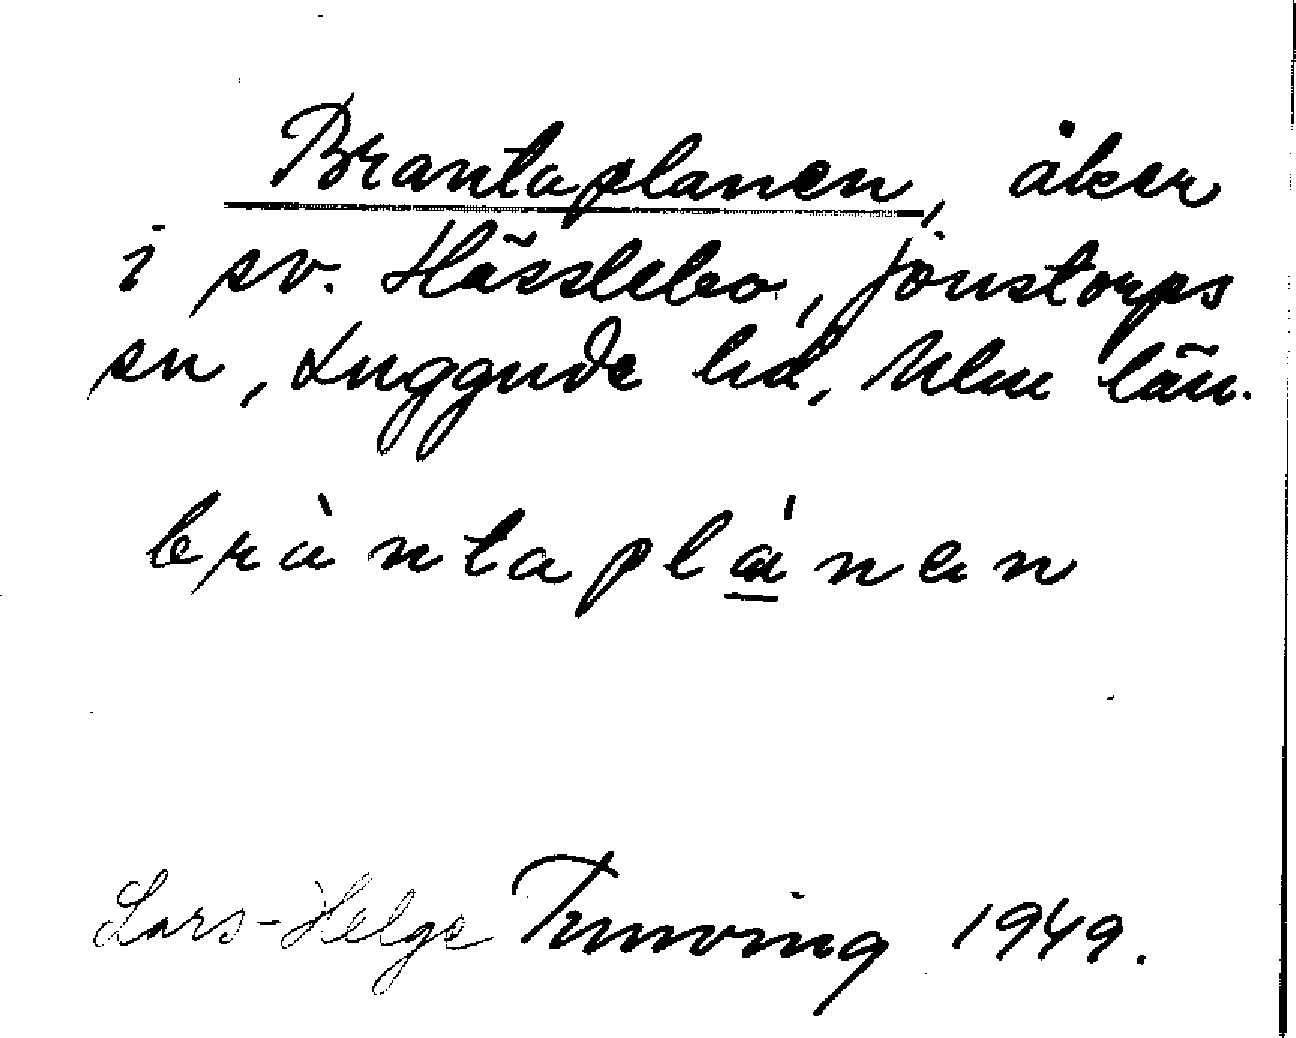 Brantaplanen, åker
i sv. Hässlebo, Jonstorps
sn, Luggude hd, Mlm län.
bràntaplánen
Lars-Helge Trunving 1949.